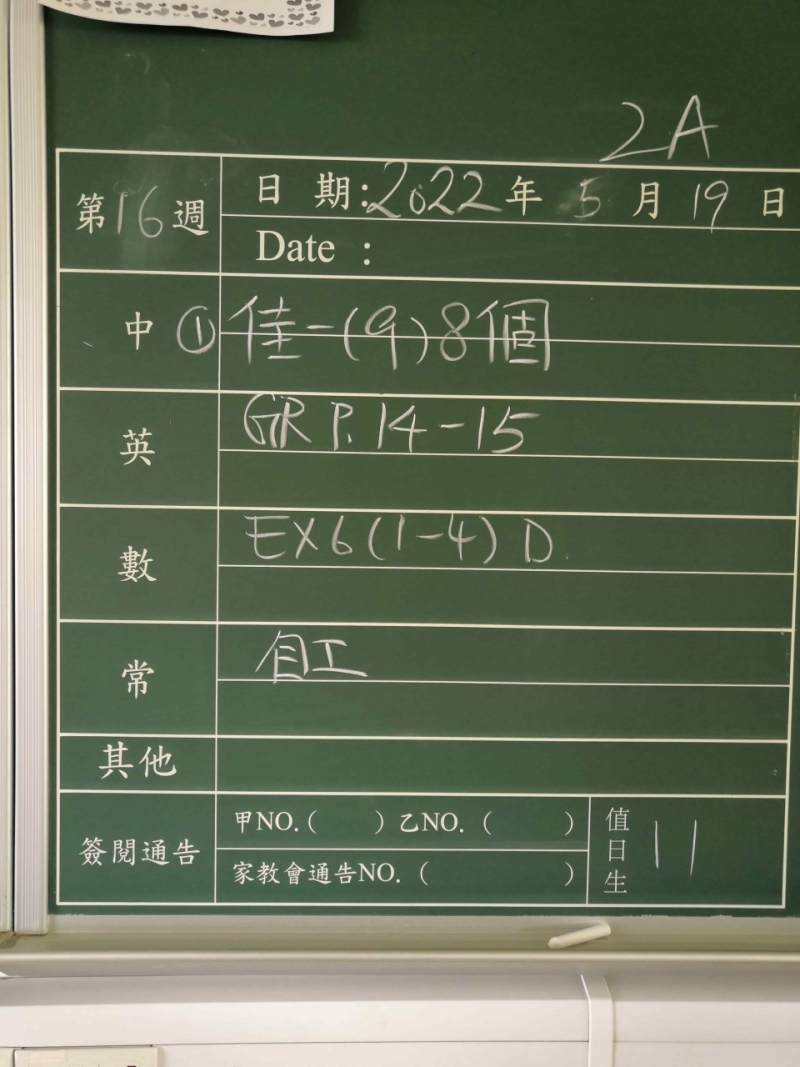 2A
第16週
日 期:2022年 5月 19日
Date :
中 ① 佳一(9)8個
英 GR P.14-15
數 EX6(1-4) D
常 自工
其他
簽閱通告 甲NO.( ) 乙NO. ( )
家教會通告NO. ( )
值日生 11